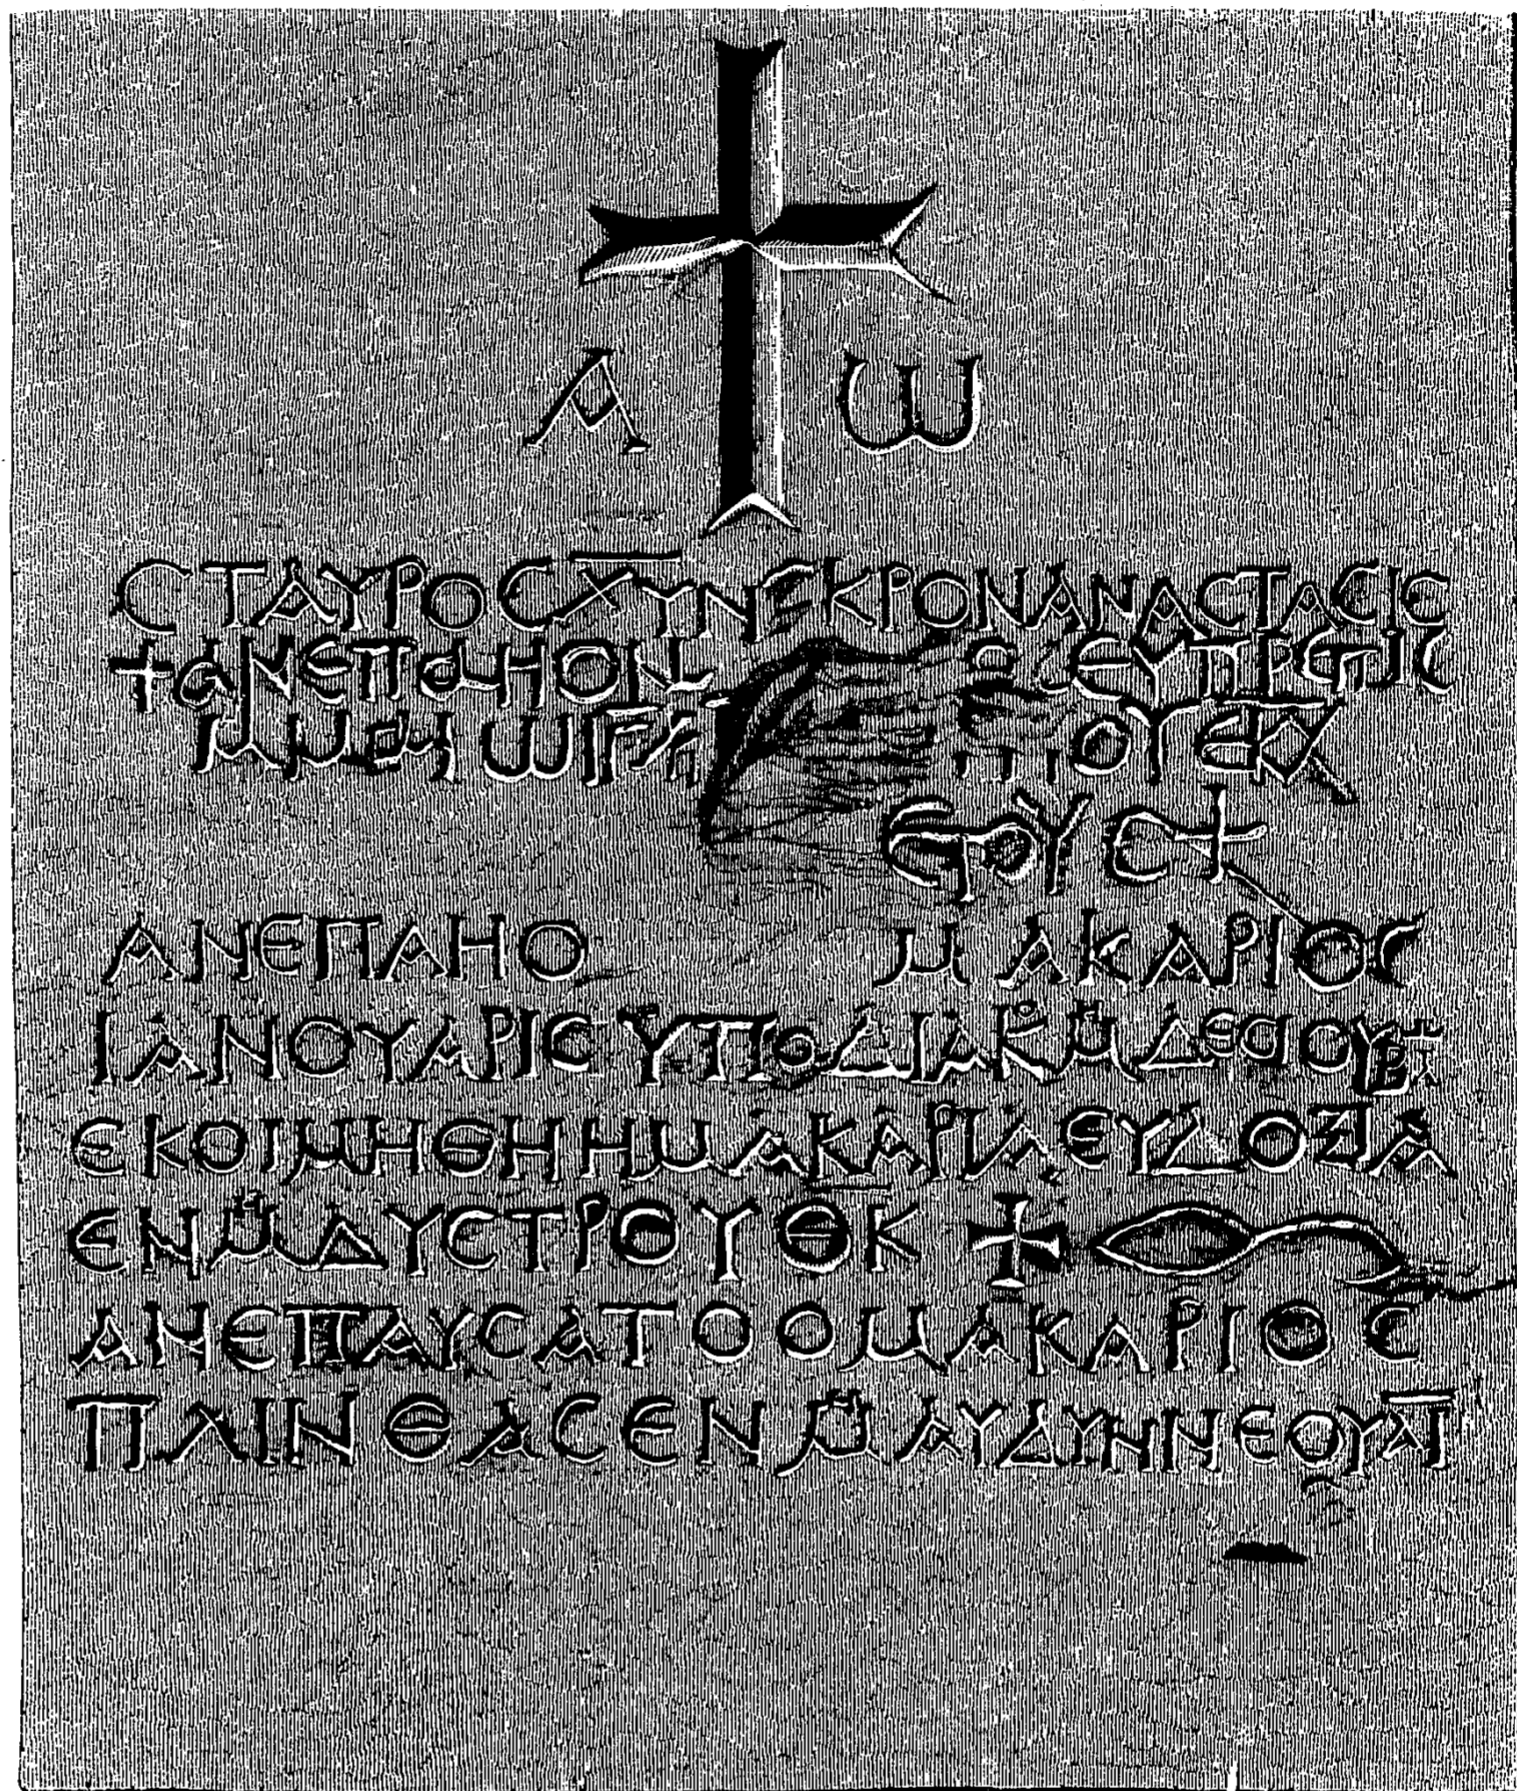 Α Ω
СΤΑΥΡΟСΧΥΝΕΚΡΟΝΑΝΑСΤΑСΙС
+ΑΝΕΠΑΗΟΜ ΕΥΠΡΕΠΙС
ΟΥ ΕΚ
ΕΤΟΥС Ε+
ΑΝΕΠΑΗΟ ΜΑΚΑΡΙΟС
ΙΑΝΟΥΑΡΙС ΥΠΟΔΙΑΚ Μ ΔΕСΙΟΥ
ΕΚΟΙΜΗΘΗ Η ΜΑΚΑΡΙΑ ΕΥΔΟΞΙΑ
ΕΝ Μ ΔΥСΤΡΟΥ ΘΚ +
ΑΝΕΠΑΥСΑΤΟ Ο ΜΑΚΑΡΙΟС
ΠΛΙΝΘΑС ΕΝ Μ ΑΥΔΥΝΝΕΟΥ ΑΙ